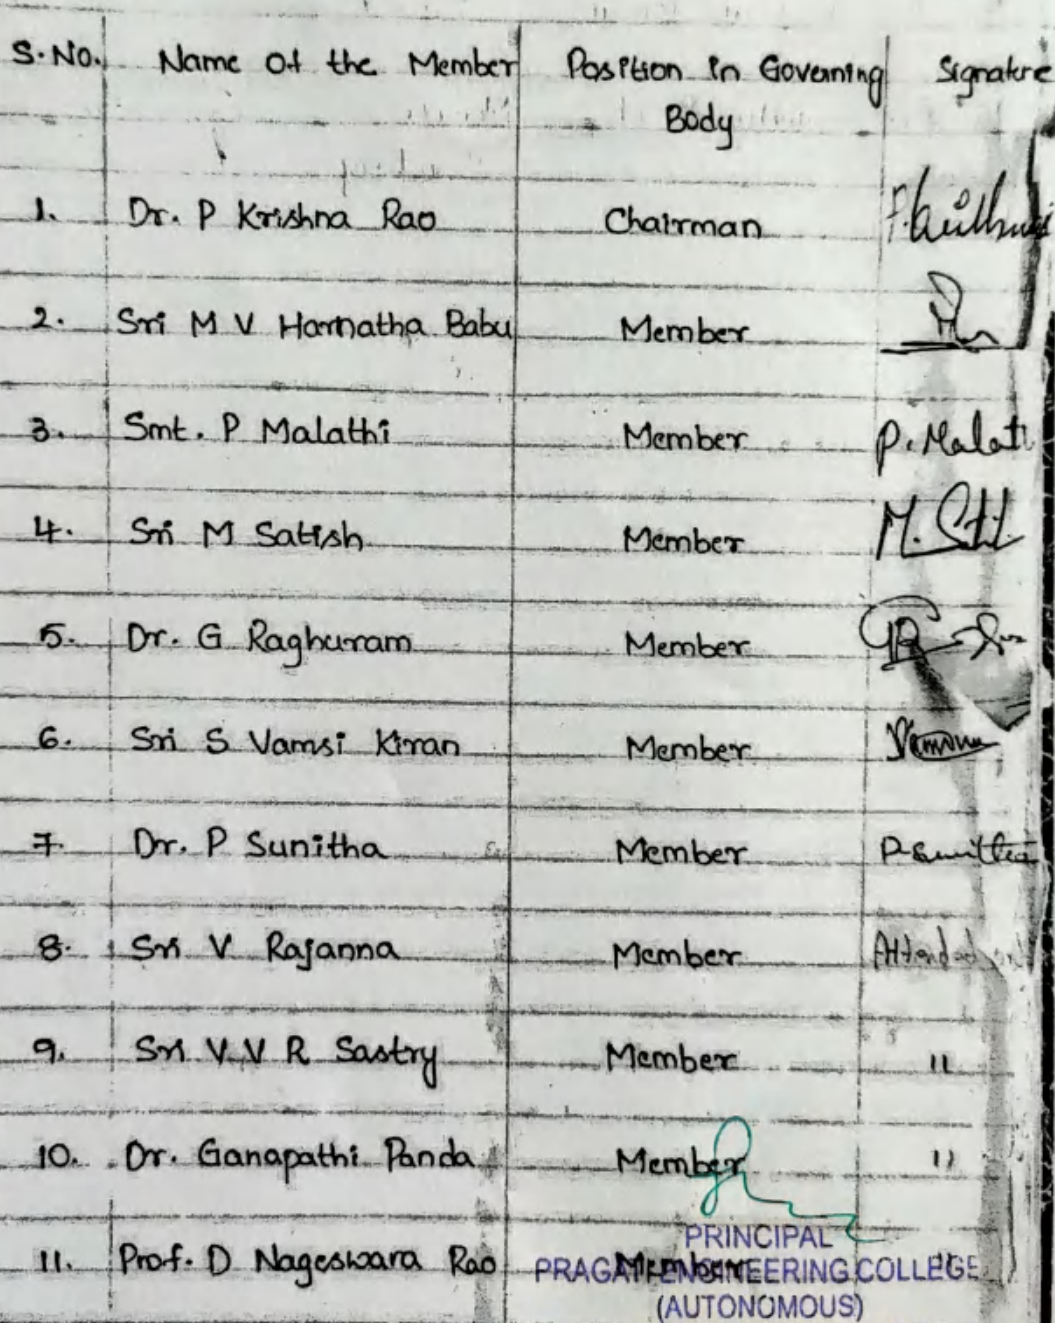 S.No. Name of the Member Position in Governing Signature
Body
1. Dr. P Krishna Rao Chairman
2. Sri M V Harnatha Babu Member
3. Smt. P Malathi Member P. Malati
4. Sri M Satish Member M. Satish
5. Dr. G Raghuram Member
6. Sri S Vamsi Kiran Member
7. Dr. P Sunitha Member P. Sunitha
8. Sri V Rajanna Member Attended
9. Sri V V R Sastry Member 11
10. Dr. Ganapathi Panda Member 11
PRINCIPAL
11. Prof. D Nageswara Rao Member 11
PRAGATI ENGINEERING COLLEGE
(AUTONOMOUS)